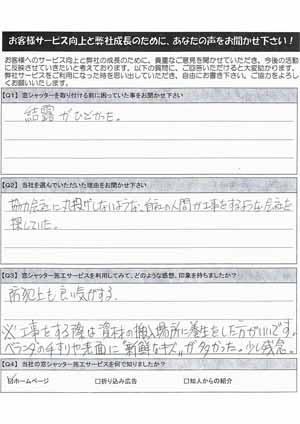 お客様サービス向上と弊社成長のために、あなたの声をお聞かせ下さい！
お客様へのサービス向上と弊社の成長のために、貴重なご意見を聞かせていただき、今後の活動
に反映させていきたいと考えております。以下の質問に、ご回答いただけると大変助かります。
弊社サービスをご利用になった時を思い出していただき、自由にお書き下さい。ご協力をよろし
くお願いいたします。
【Q1】 窓シャッターを取り付ける前に困っていた事をお聞かせ下さい
結露がひどかった。
【Q2】 当社を選んでいただいた理由をお聞かせ下さい
協力会社に丸投げしないような、自社の人間が工事をするような会社を
探していた。
【Q3】 窓シャッター施工サービスを利用してみて、どのような感想、印象を持ちましたか？
防犯上も良い気がする.
※工事をする際は資材の搬入場所に養生をした方がいいです。
ベランダの手すりや表面に"新鮮なキズ"が多かった。少し残念。
【Q4】 当社の窓シャッター施工サービスを何で知りましたか？
☑ホームページ □折り込み広告 □知人からの紹介